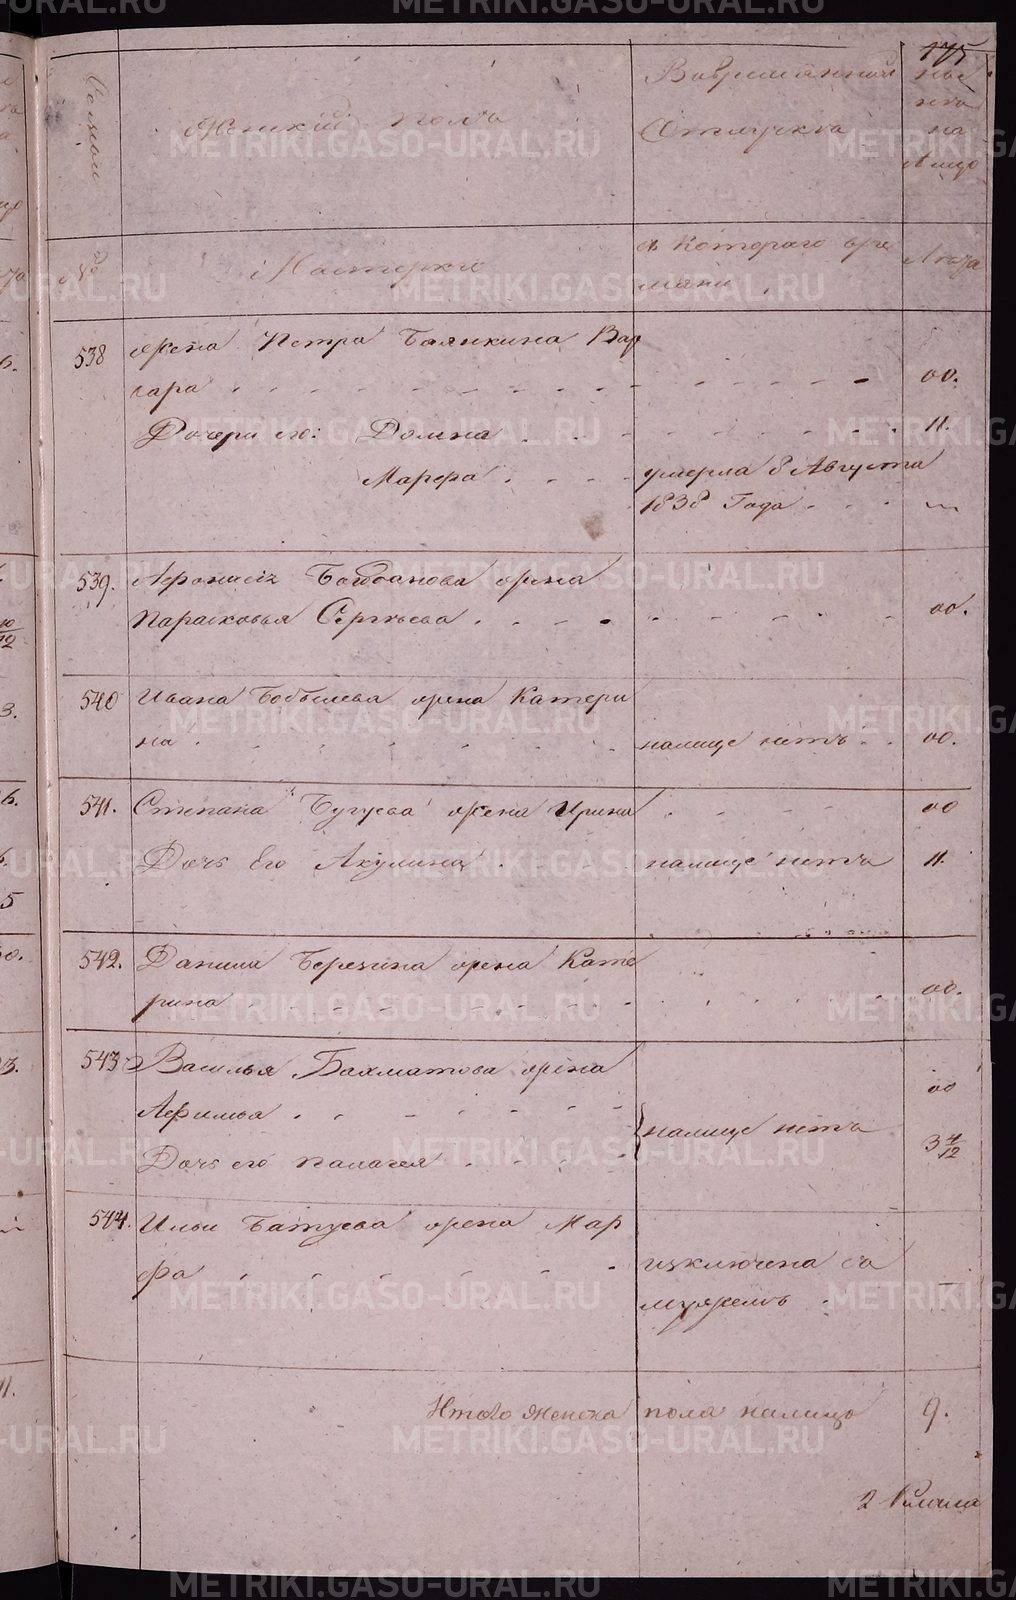 175
Семьи
Женский полъ
Вовременной
Отлучке
ны
не
на
лицо
№
Мастерскго
съ котораго вре
мяни
Лета
538 Жена Петра Баянкина Вар
вара 00.
Дочери его: Домна 11.
Марфа умерла 8 Августа
1838 Года
539. Афонасiя Богданова жена
Парасковья Сергеева 00.
540 Ивана Бобылева жена Катери
на налице нетъ 00.
541. Степана Бугуева жена Ирина 00
Дочь Его Акулина налице нетъ 11.
542. Данила Березина жена Кате
рина 00.
543 Василья Бахматова жена 00
Афимья
налице нетъ
Дочь его Палагея 3 4/12
544. Ильи Батуева жена Мар
фа изключена съ
мужемъ
Итого женска пола налицо 9.
METRIKI.GASO-URAL.RU